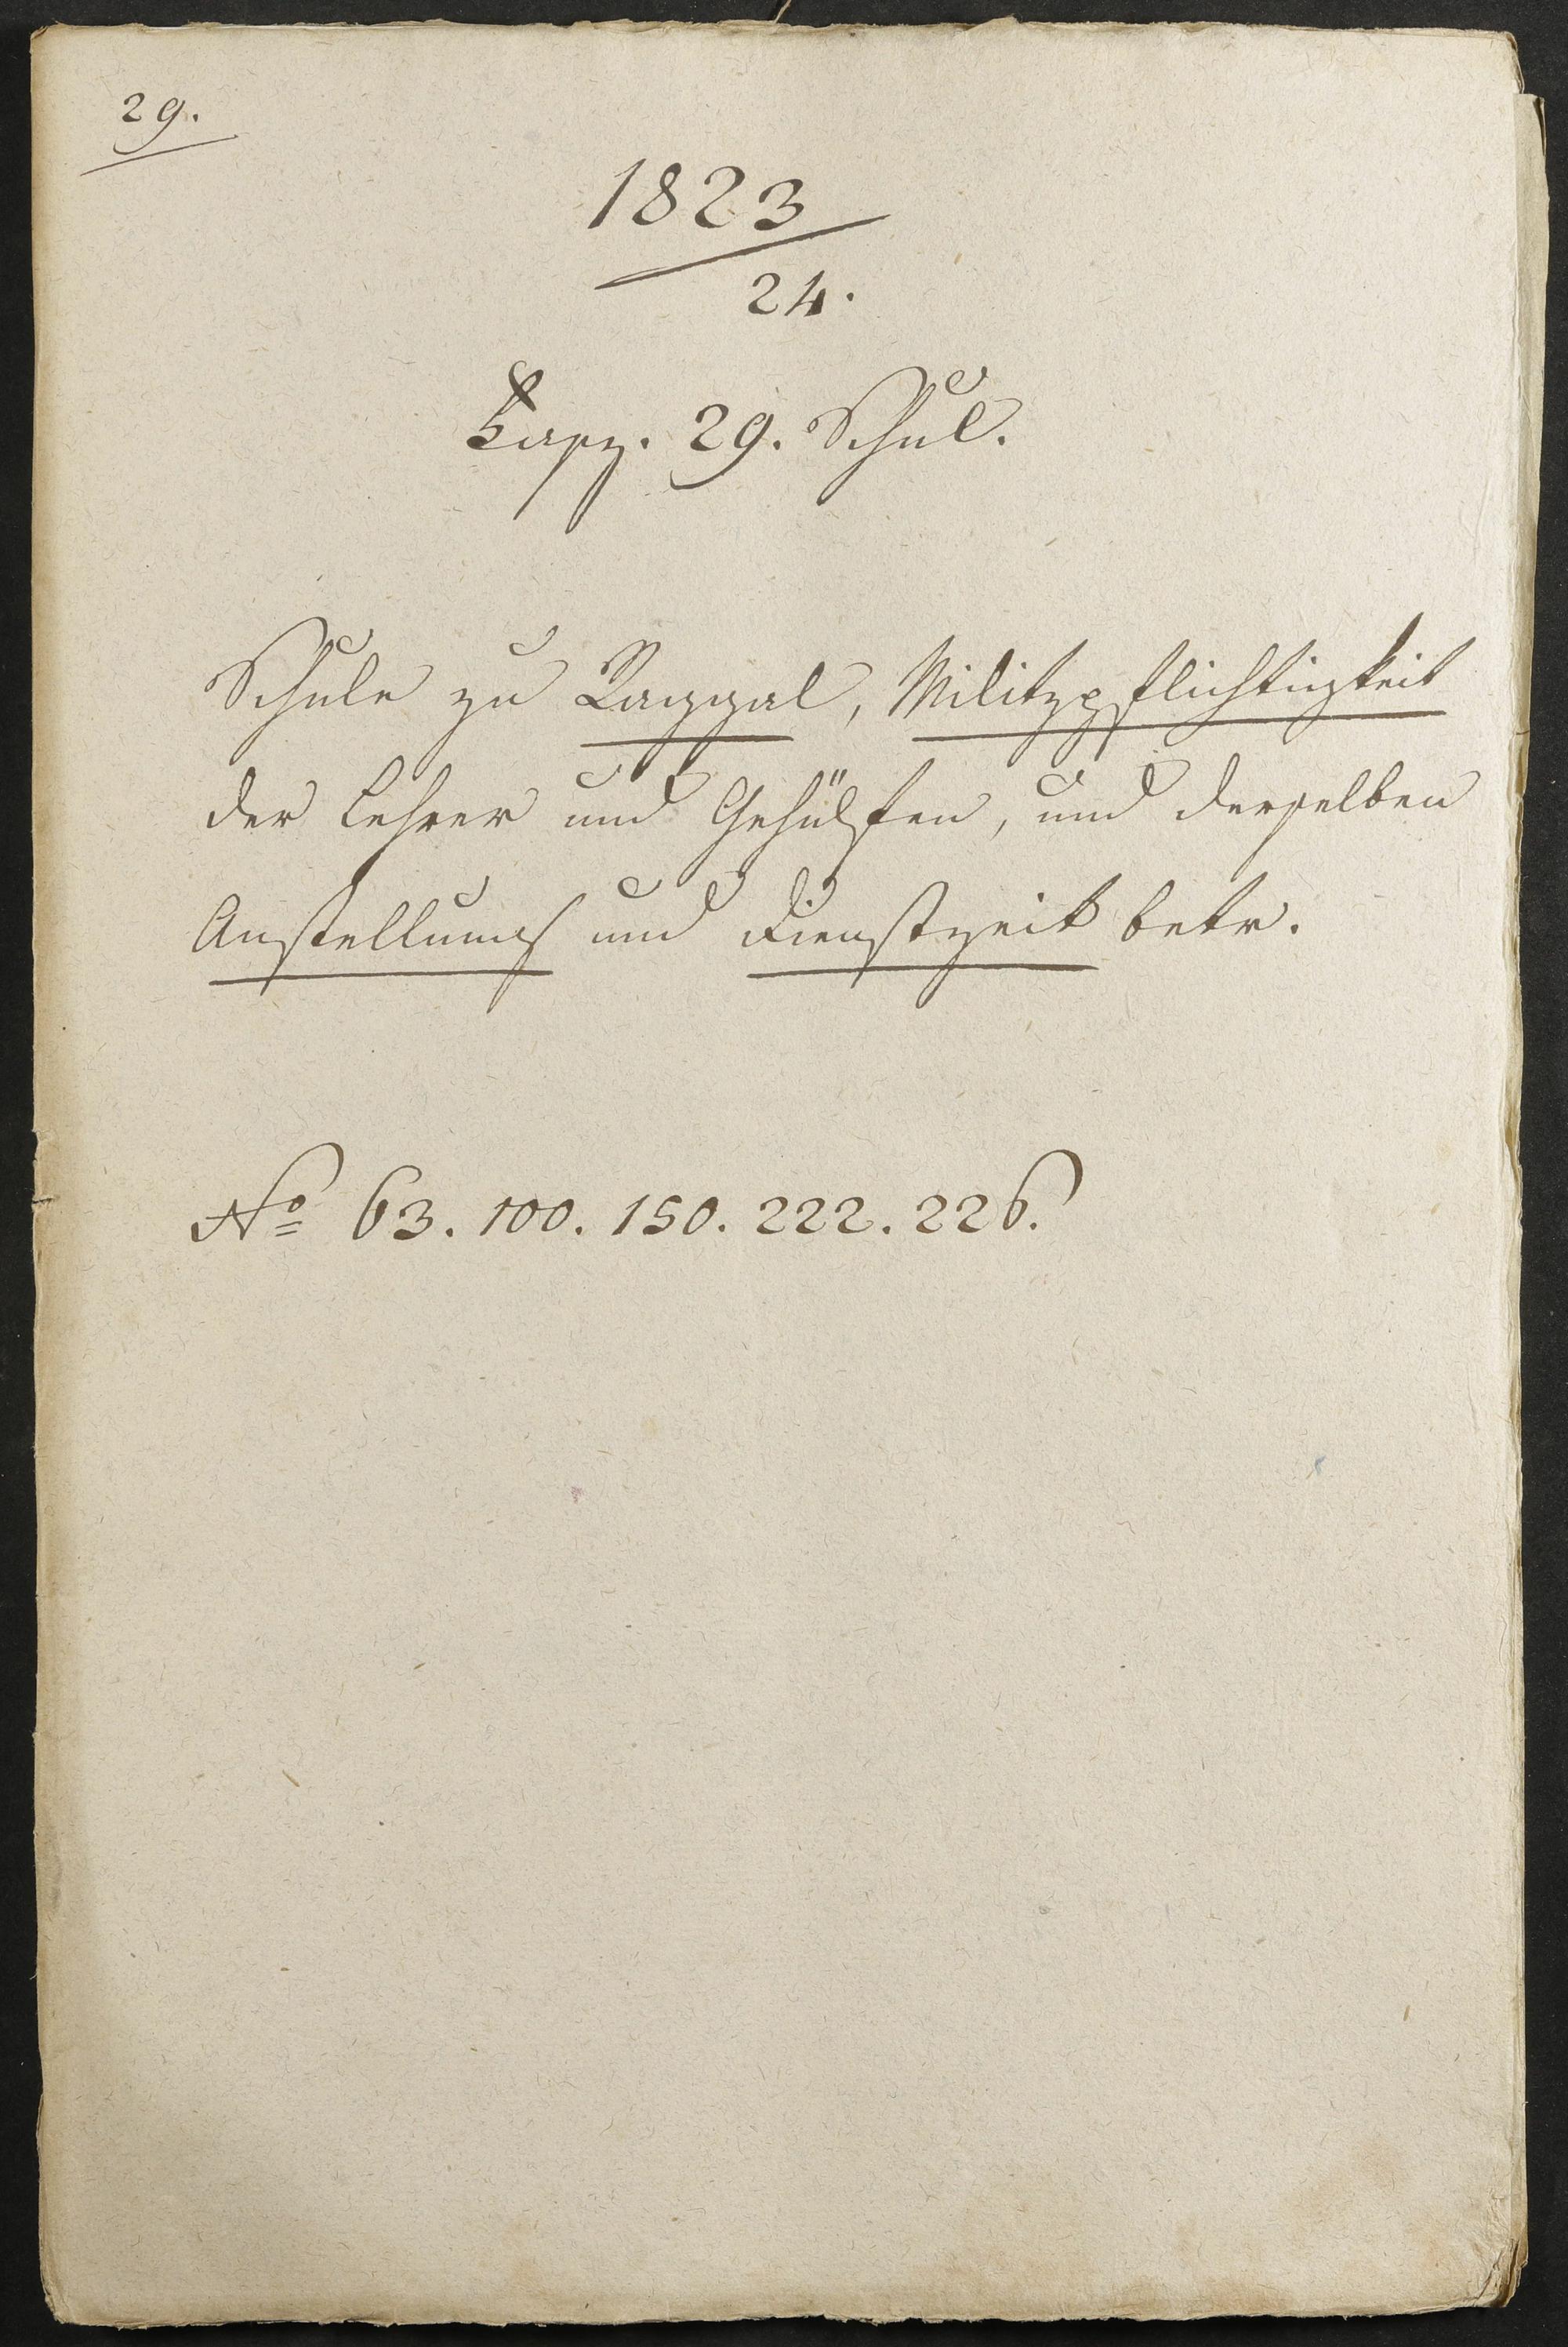 29.
1823
24.
Fasz. 29. Schul.
Schule zu Raggal, Militzpflichtigkeit
der Lehrer und Gehülfen, und derselben
Anstellungs und Dienstzeit betr.
No 63. 100. 150. 222. 226.